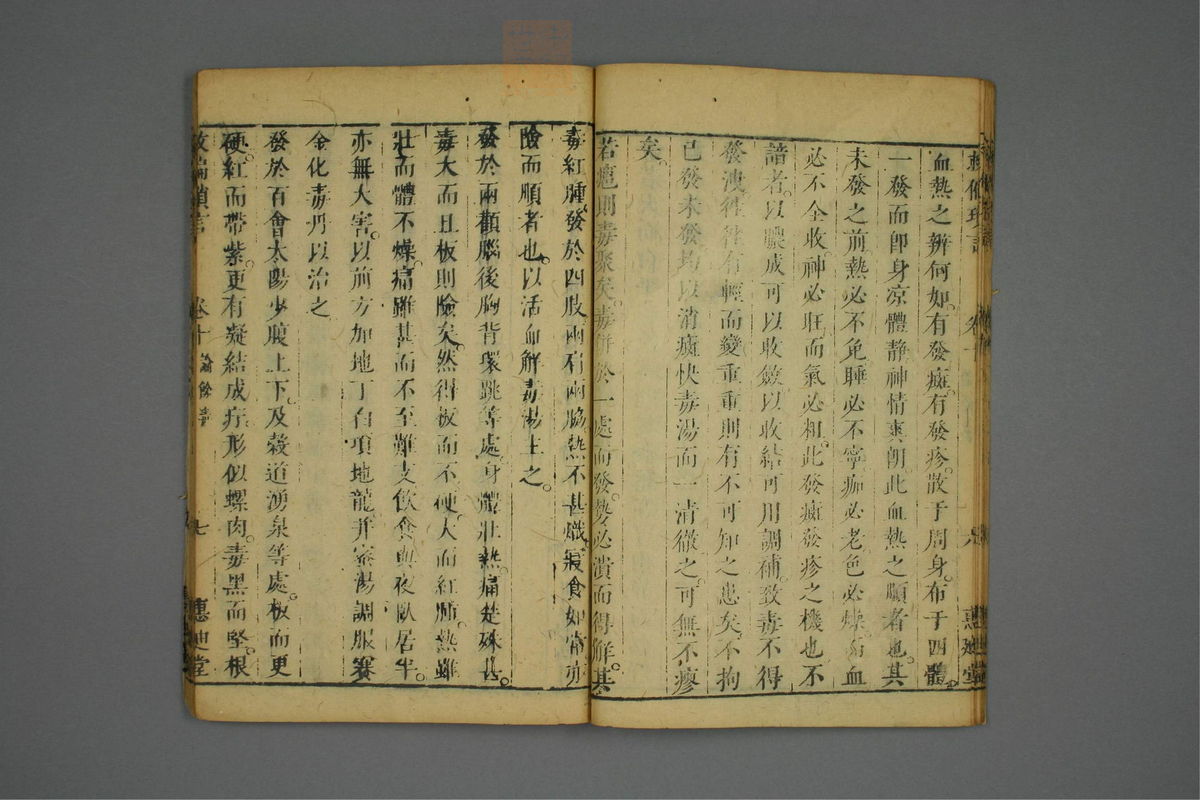 血熱之辨何如有發癍有發疹散于周身布于四體
一發而卽身凉體静神情爽朗此血熱之順者也其
未發之前熱必不免睡必不寧痂必老色必燥而血
必不全收神必旺而氣必粗此發癍發疹之機也不
諳者以膿成可以收斂以收結可用調補致毒不得
發洩往往有輕而變重重則有不可知之患矣不拘
已發未發均以消癍快毒湯而一清徹之可無不瘳
矣
若癰則毒聚矣毒併於一處而發勢必潰而得解其
毒紅腫發於四肢兩肩兩脇熱不甚熾寢食如常亦
險而順者也以活血解毒湯主之
發於兩顴腦後胸背環跳等處身體壯熱痛楚殊甚
毒大而且板則險矣然得板而不硬大而紅腫熱雖
壯而體不燥痛雖甚而不至難支飲食與夜臥居半
亦無大害以前方加地丁白項地龍并蜜湯調服賽
金化毒丹以治之
發於百會太陽少腹上下及榖道湧泉等處板而更
硬紅而帶紫更有凝結成疔形似螺肉毒黑而堅根
卷十
七
惠迪堂